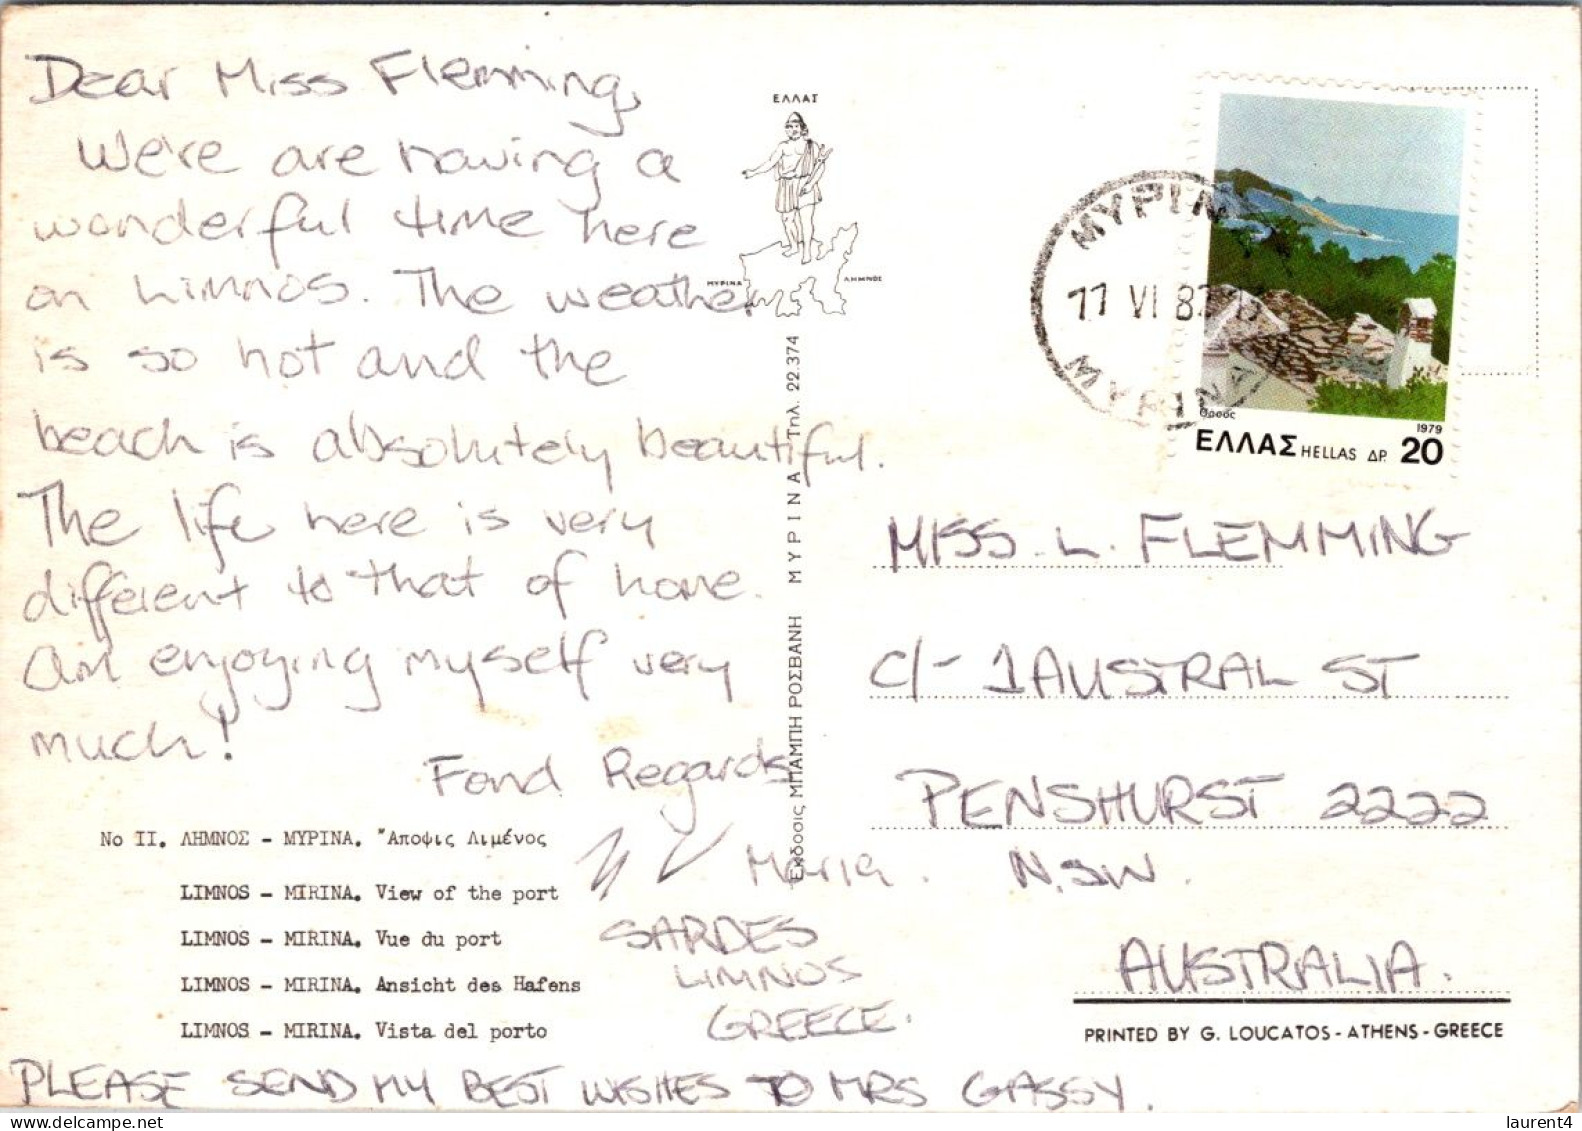 Dear Miss Flemming,
We're are having a
wonderful time here
on Limnos. The weather
is so hot and the
beach is absolutely beautiful.
The life here is very
different to that of home.
Am enjoying myself very
much!
Fond Regards
Maria.
SARDES
LIMNOS
GREECE.
PLEASE SEND MY BEST WISHES TO MRS GASSY.
No II. ΛΗΜΝΟΣ - ΜΥΡΙΝΑ. Ἄποψις Λιμένος
LIMNOS - MIRINA. View of the port
LIMNOS - MIRINA. Vue du port
LIMNOS - MIRINA. Ansicht des Hafens
LIMNOS - MIRINA. Vista del porto
ΕΛΛΑΣ
ΜΥΡΙΝΑ
ΛΗΜΝΟΣ
Εκδοσις ΜΠΑΜΠΗ ΡΟΣΒΑΝΗ ΜΥΡΙΝΑ Τηλ. 22.374
ΜΥΡΙΝΑ
11 VI 8
MYRINA
Θρᾶος
1979
ΕΛΛΑΣ HELLAS ΔΡ. 20
MISS. L. FLEMMING
C/- 1 AUSTRAL ST
PENSHURST 2222
N.SW.
AUSTRALIA.
PRINTED BY G. LOUCATOS - ATHENS - GREECE
laurent4